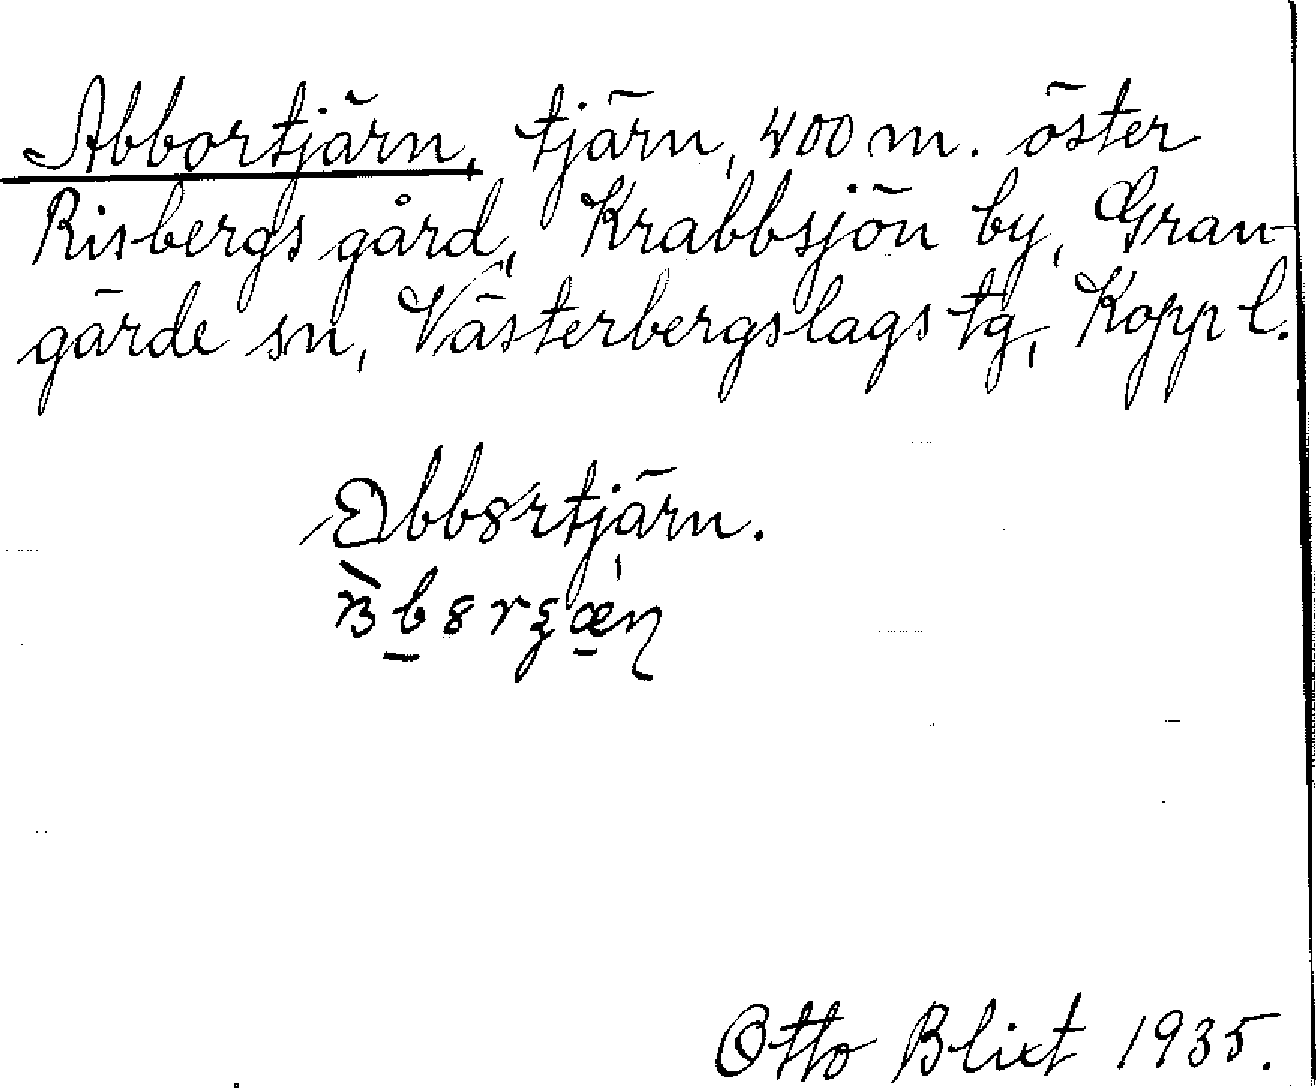 Abbortjärn, tjärn, 400 m. öster
Risbergs gård, Krabbsjön by, Gran-
gärde sn, Västerbergslags tg, Kopp l.
Otto Blixt 1935.